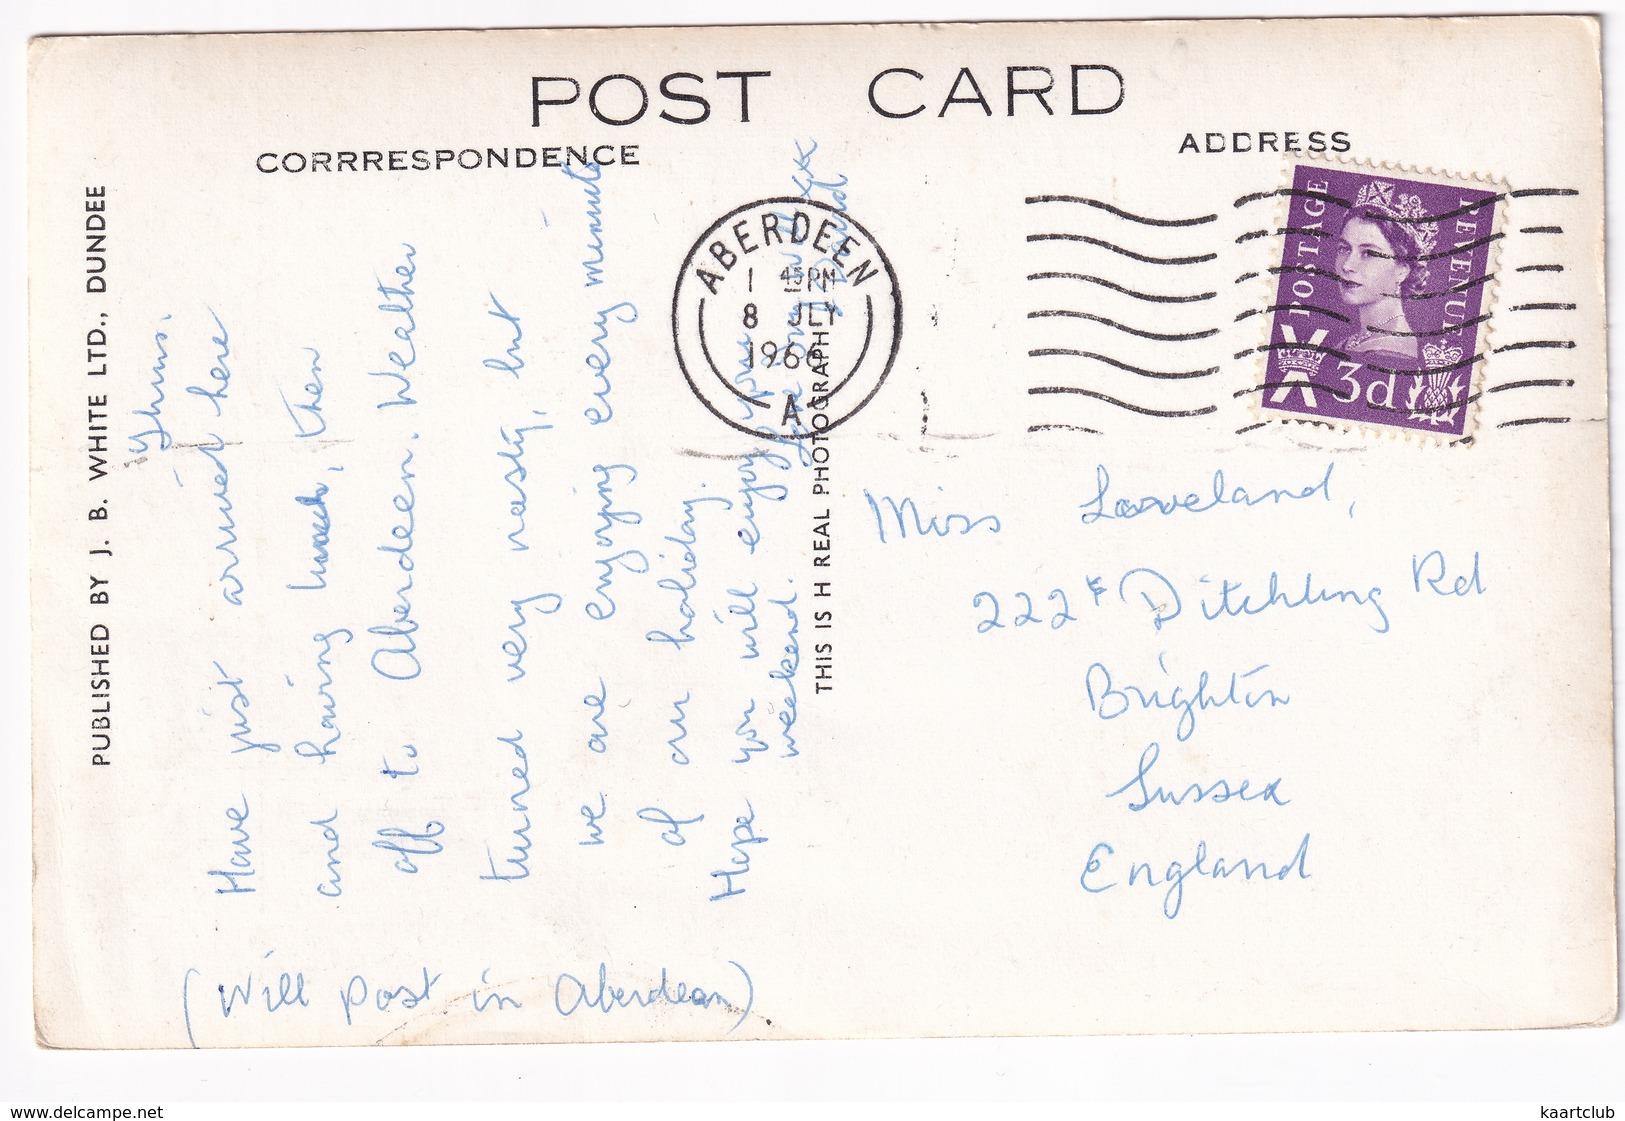 POST CARD
CORRRESPONDENCE
ADDRESS
PUBLISHED BY J. B. WHITE LTD., DUNDEE
THIS IS H REAL PHOTOGRAPH
ABERDEEN
1 45PM
8 JLY
1966
A
POSTAGE
REVENUE
3d
Thurs.
Have just arrived here
and having lunch, then
off to Aberdeen. Weather
turned very nasty, but
we are enjoying every minute
of our holiday.
Hope you will enjoy your
weekend.
Love
David
xxx
(Will post in Aberdeen)
Miss Loveland,
222 Ditchling Rd
Brighton
Sussex
England
www.delcampe.net
kaartclub